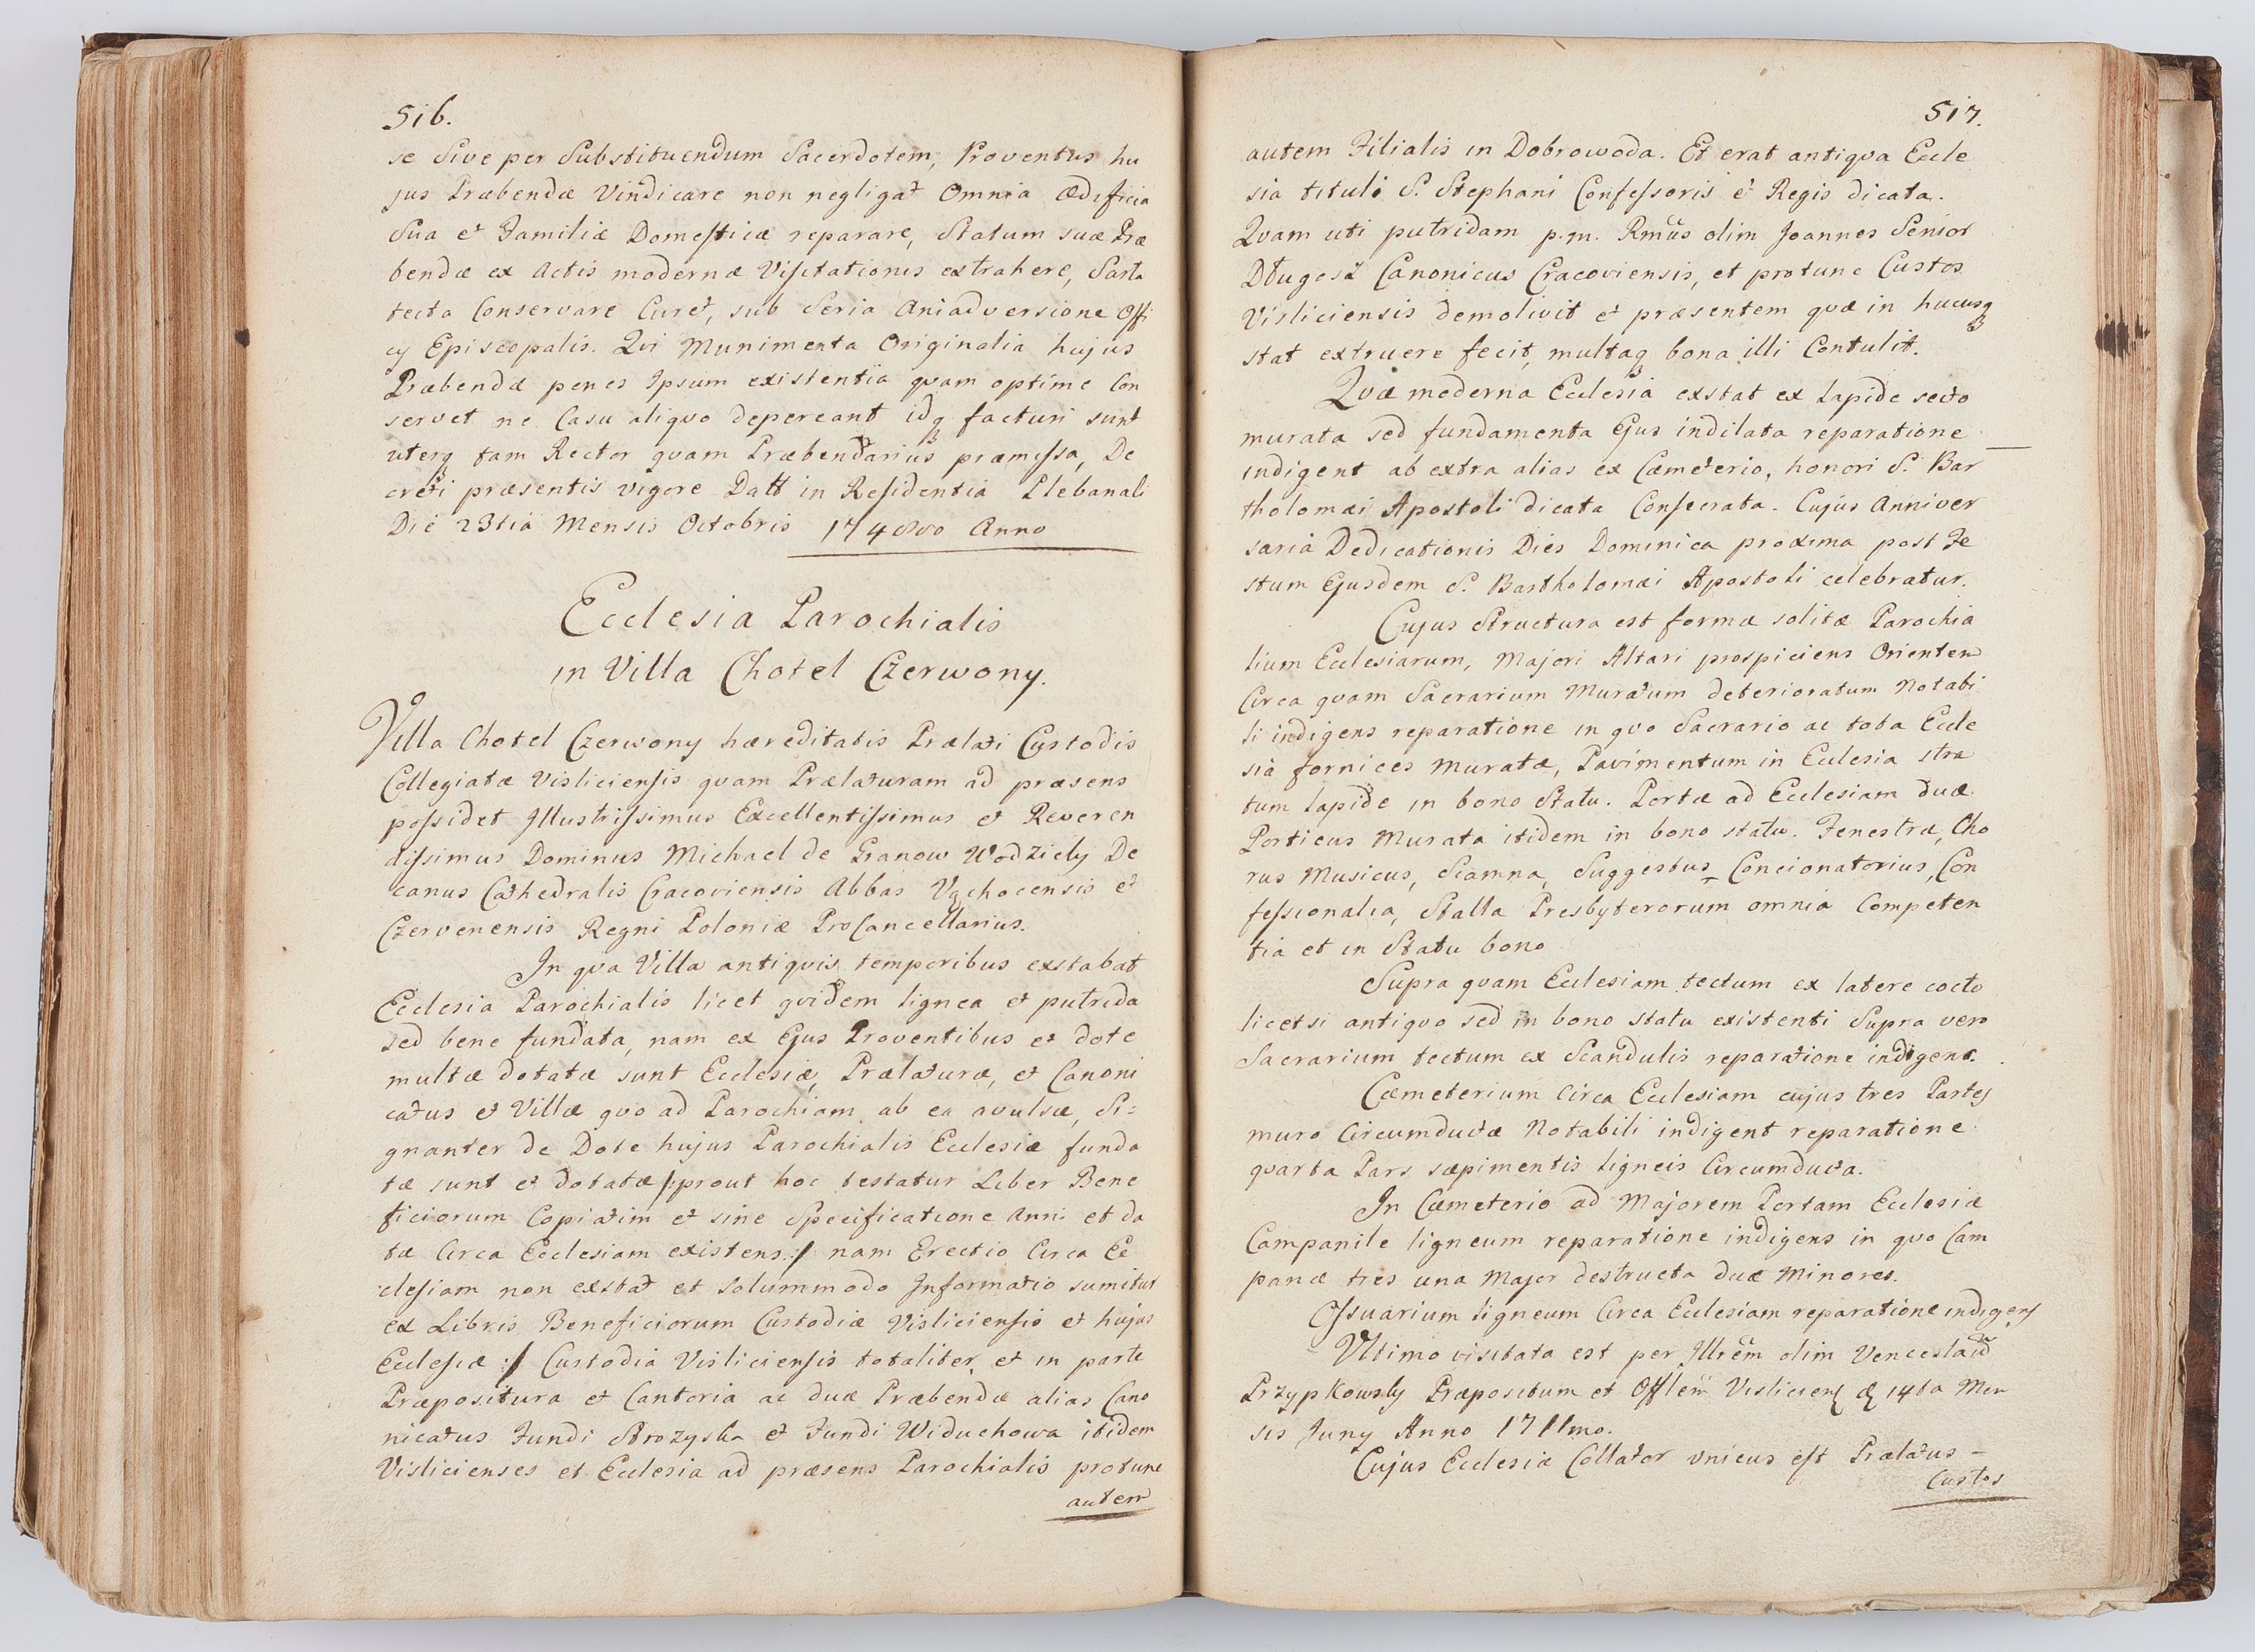 516.
se sive per Substituendum Sacerdotem, Proventus hu
jus Præbendæ Vindicare non negligat Omnia Ædificia
Sua et Familiæ Domesticæ reparare, Statum suæ Præ
bendæ ex Actis modernæ Visitationis extrahere, Sarta
tecta Conservare Curet, sub Seria Aniadversione Offi
cy Episcopalis. Qvi Munimenta Originalia hujus
Præbendæ penes Ipsum existentia qvam optime Con
servet ne Casu aliqvo depereant idq facturi sunt
uterq tam Rector qvam Præbendarius præmissa, De
creti præsentis vigore Datt in Residentia Plebanali
Die 23tia Mensis Octobris 1748vo Anno
Ecclesia Parochialis
in Villa Chotel Czerwony.
Villa Chotel Czerwony hæreditatis Prælati Custodis
Collegiatæ Visliciensis qvam Prælaturam ad præsens
possidet Illustrissimus Excellentissimus et Reveren
dissimus Dominus Michael de Granow Wodzicky De
canus Cathedralis Cracoviensis Abbas Vąchocensis et
Czervenensis Regni Poloniæ ProCancellarius.
In qva Villa antiqvis temporibus exstabat
Ecclesia Parochialis licet qvidem lignea et putrida
sed bene fundata, nam ex Ejus Proventibus et dote
multæ dotatæ sunt Ecclesiæ, Prælaturæ, et Canoni
catus et Villæ qvo ad Parochiam ab ea avulsæ, Si=
gnanter de Dote hujus Parochialis Ecclesiæ funda
tæ sunt et dotatæ /:prout hoc testatur Liber Bene
ficiorum Copiatim et sine Specificatione Anni et da
tæ Circa Ecclesiam existens:/ nam Erectio Circa Ec
clesiam non exstat et solummodo Informatio sumitur
ex Libris Beneficiorum Custodiæ Visliciensis et hujus
Ecclesiæ :/ Custodia Visliciensis totaliter, et in parte
Præpositura et Cantoria ac duæ Præbendæ alias Cano
nicatus Fundi Strozyska et Fundi Widuchowa itidem
Vislicienses et Ecclesia ad præsens Parochialis protunc
autem
517.
autem Filialis in Dobrowoda. Et erat antiqva Eccle
sia tituli S. Stephani Confessoris et Regis dicata.
Qvam uti putridam p.m. Rmus olim Joannes Senior
Długosz Canonicus Cracoviensis, et protunc Custos
Visliciensis demolivit et præsentem qvæ in hucusq
stat extruere fecit, multaq bona illi Contulit.
Qvæ moderna Ecclesia exstat ex Lapide secto
murata sed fundamenta Ejus indilata reparatione
indigent ab extra alias ex Cæmeterio, honori S. Bar
tholomæi Apostoli dicata Consecrata. Cujus Anniver
saria Dedicationis Dies Dominica proxima post Fe
stum Ejusdem S. Bartholomæi Apostoli celebratur.
Cujus Structura est formæ solitæ Parochia
lium Ecclesiarum, Majori Altari prospiciens Orientem
Circa qvam Sacrarium Muratum deterioratum Notabi
li indigens reparatione in qvo Sacrario ac tota Eccle
sia fornices Muratæ, Pavimentum in Ecclesia stra
tum lapide in bono Statu. Portæ ad Ecclesiam duæ
Porticus Murata itidem in bono statu. Fenestræ, Cho
rus Musicus, Scamna, Suggestus Concionatorius, Con
fessionalia, Stalla Presbyterorum omnia Competen
tia et in Statu bono
Supra qvam Ecclesiam tectum ex latere cocto
licetsi antiqvo sed in bono statu existenti Supra vero
Sacrarium tectum ex Scandulis reparatione indigens.
Cæmeterium Circa Ecclesiam cujus tres Partes
muro Circumductæ Notabili indigent reparatione
qvarta Pars sæpimentis ligneis Circumducta.
In Cæmeterio ad Majorem Portam Ecclesiæ
Campanile ligneum reparatione indigens in qvo Cam
panæ tres una Major destructa duæ Minores.
Ossuarium ligneum Circa Ecclesiam reparatione indigens
Ultimo visitata est per Illrem olim Venceslaum
Przypkowsky Præpositum et Offlem Vislicien 14ta Men
sis Juny Anno 1711mo.
Cujus Ecclesiæ Collator unicus est Prælatus –
Custos